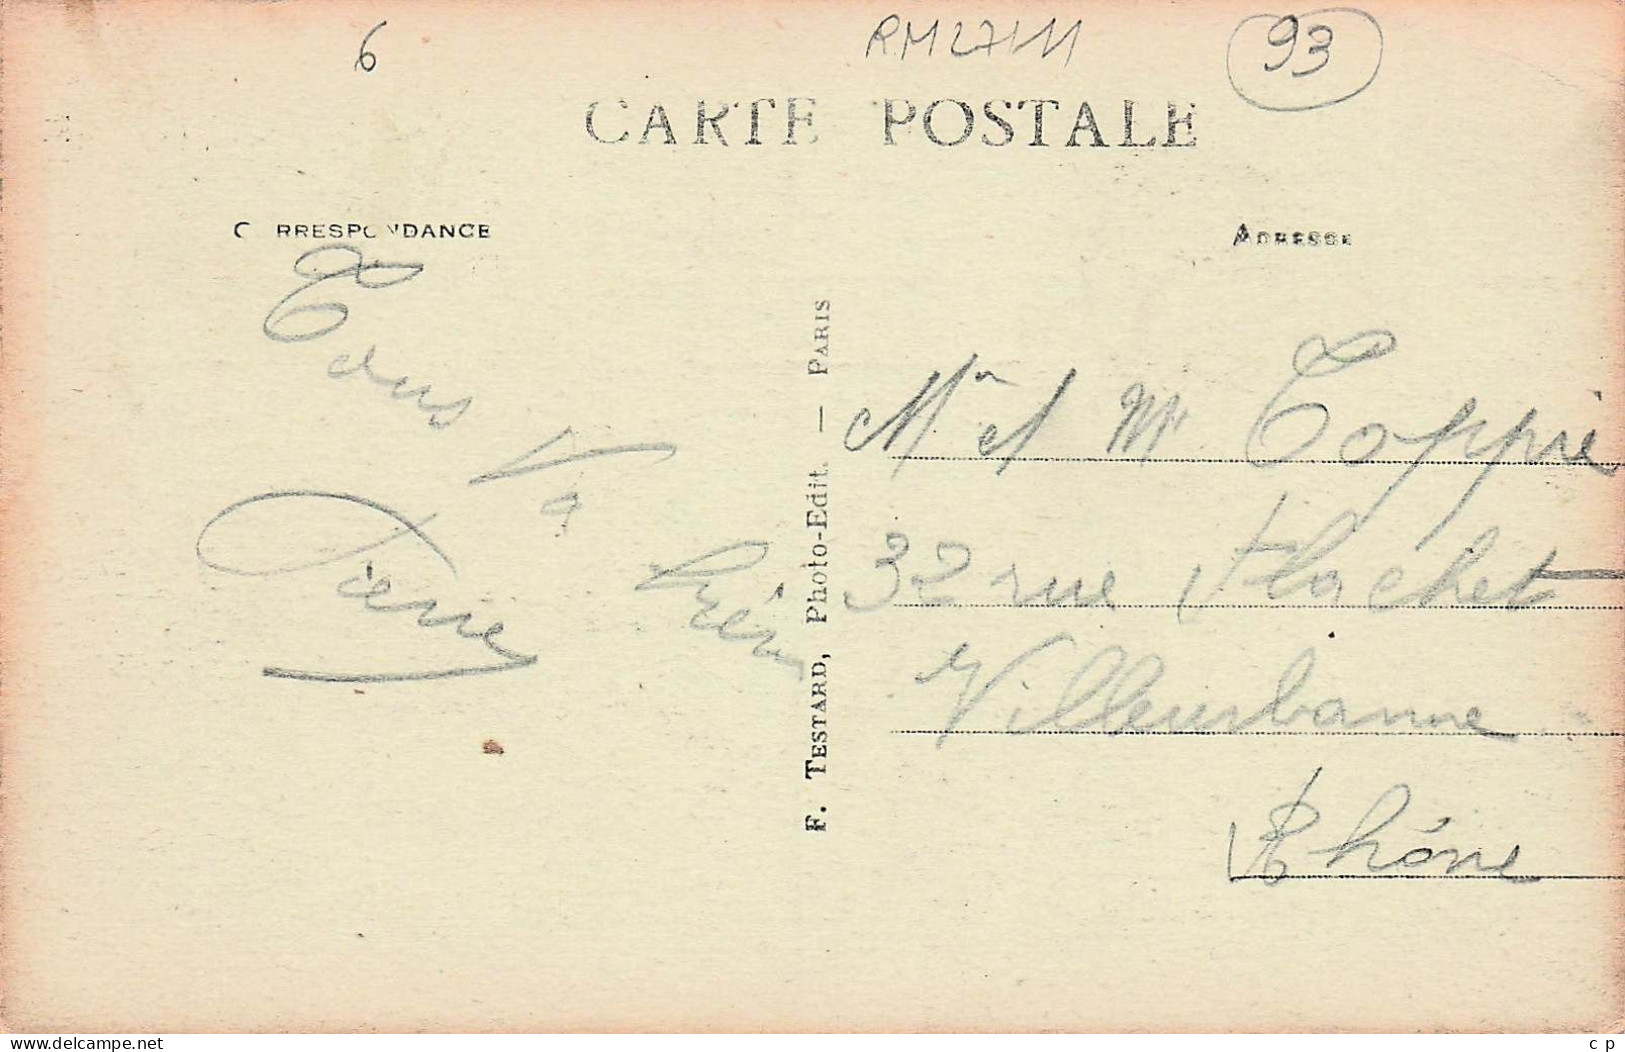 6
RM27111
93
CARTE POSTALE
C RRESPONDANCE
ADRESSE
Tous Va
Bien
Pierre
F. TESTARD, Photo-Edit. — PARIS
Mr et Mme Toppié
32 rue Flachet
Villeurbanne
Rhône
delcampe.net
c p